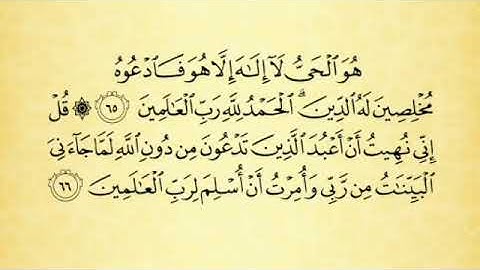 هُوَ ٱلْحَىُّ لَآ إِلَـٰهَ إِلَّا هُوَ فَٱدْعُوهُ
مُخْلِصِينَ لَهُ ٱلدِّينَ ۗ ٱلْحَمْدُ لِلَّهِ رَبِّ ٱلْعَـٰلَمِينَ ٦٥ ۞ قُلْ
إِنِّى نُهِيتُ أَنْ أَعْبُدَ ٱلَّذِينَ تَدْعُونَ مِن دُونِ ٱللَّهِ لَمَّا جَآءَنِىَ
ٱلْبَيِّنَـٰتُ مِن رَّبِّى وَأُمِرْتُ أَنْ أُسْلِمَ لِرَبِّ ٱلْعَـٰلَمِينَ ٦٦